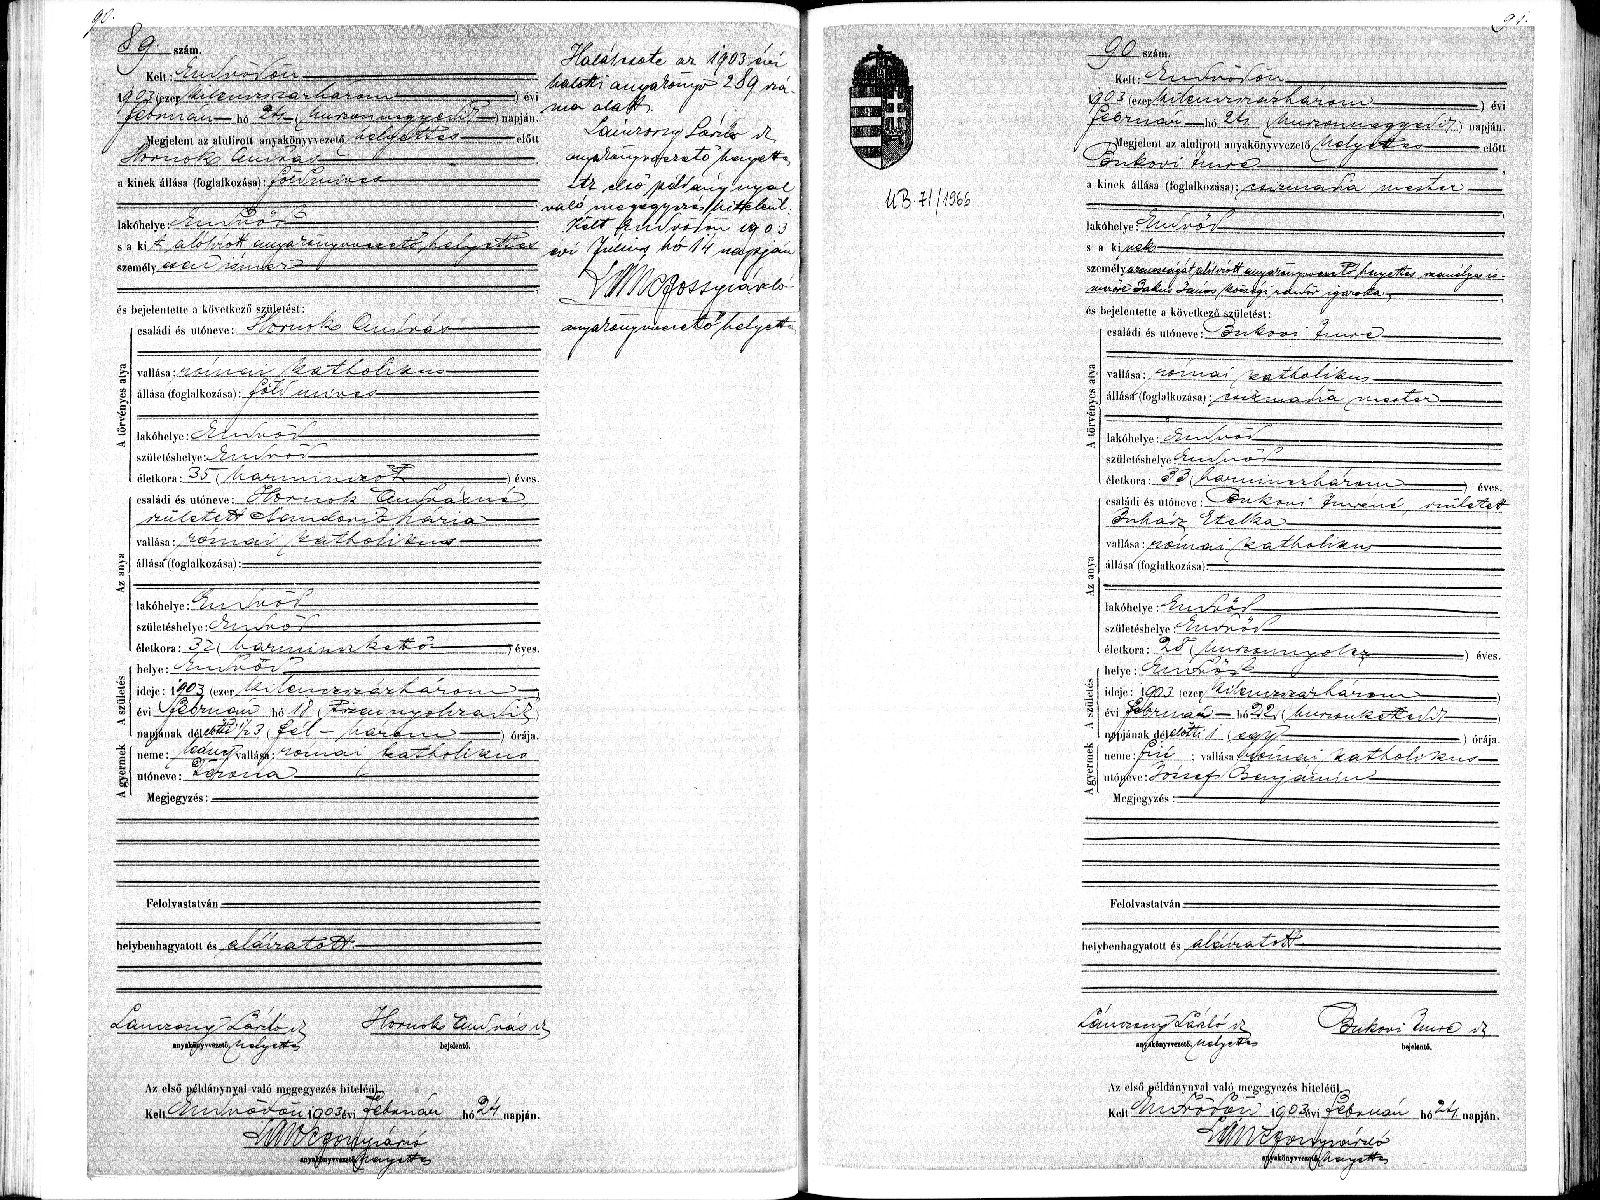 90.
89. szám.
Kelt: Endrődön
1903 (ezer kilenczszázhárom) évi
február hó 24 (huszonnegyedik) napján.
Megjelent az alulirott anyakönyvvezető helyettes előtt
Hornok András
a kinek állása (foglalkozása): földmíves
lakóhelye: Endrőd
s a kit alólírott anyakönyvvezető helyettes
személyesen ismer
és bejelentette a következő születést:
A törvényes atya
családi és utóneve: Hornok András
vallása: római katholikus
állása (foglalkozása): földmíves
lakóhelye: Endrőd
születéshelye: Endrőd
életkora: 35 (harminczöt) éves.
Az anya
családi és utóneve: Hornok Andrásné
született Sándor Mária
vallása: római katholikus
állása (foglalkozása):
lakóhelye: Endrőd
születéshelye: Endrőd
életkora: 32 (harminczkettő) éves.
A születés
helye: Endrőd
ideje: 1903 (ezer kilenczszázhárom)
évi február hó 18 (tizennyolczadik)
napjának délelőtti 1/2 3 (fél-három) órája.
A gyermek
neme: leány; vallása: római katholikus
utóneve:
Megjegyzés:
Felolvastatván
helybenhagyatott és aláíratott
Lánczossy László h Hornok András k
anyakönyvvezető helyettes bejelentő.
Az első példánynyal való megegyezés hiteléül.
Kelt Endrődön 1903 évi február hó 24 napján.
Lánczossy László
anyakönyvvezető helyettes
Halálesete az 1903 évi
halotti anyakönyv 289 szá-
ma alatt
Lánczossy László k
anyakönyvvezető helyettes
Az első példánynyal
való megegyezés hiteléül.
Kelt Endrődön 1903
évi Július hó 14 napján
Lánczossy László
anyakönyvvezető helyettes
UB. 71/1966
91.
90 szám.
Kelt: Endrődön
1903 (ezer kilenczszázhárom) évi
február hó 24 (huszonnegyedik) napján.
Megjelent az alulirott anyakönyvvezető helyettes előtt
Bukovi Imre
a kinek állása (foglalkozása): csizmadia mester
lakóhelye: Endrőd
s a kinek
személyazonosságát alólírott anyakönyvvezető helyettes személyes is-
merőse János községi rendőr igazolta,
és bejelentette a következő születést:
A törvényes atya
családi és utóneve: Bukovi Imre
vallása: római katholikus
állása (foglalkozása): csizmadia mester
lakóhelye: Endrőd
születéshelye Endrőd
életkora: 33 (harminczhárom) éves.
Az anya
családi és utóneve: Bukovi Imréné, született
Juhász Etelka
vallása: római katholikus
állása (foglalkozása):
lakóhelye: Endrőd
születéshelye: Endrőd
életkora: 28 (huszonnyolcz) éves.
A születés
helye: Endrőd
ideje: 1903 (ezer kilenczszázhárom)
évi február hó 22 (huszonkettedik)
napjának délelőtti 1 (egy) órája.
A gyermek
neme: fiú; vallása római katholikus
utóneve: József Benjámin
Megjegyzés:
Felolvastatván
helybenhagyatott és aláíratott
Lánczossy László k Bukovi Imre k
anyakönyvvezető helyettes bejelentő.
Az első példánynyal való megegyezés hiteléül.
Kelt Endrődön 1903 évi február hó 24 napján.
Lánczossy László
anyakönyvvezető helyettes